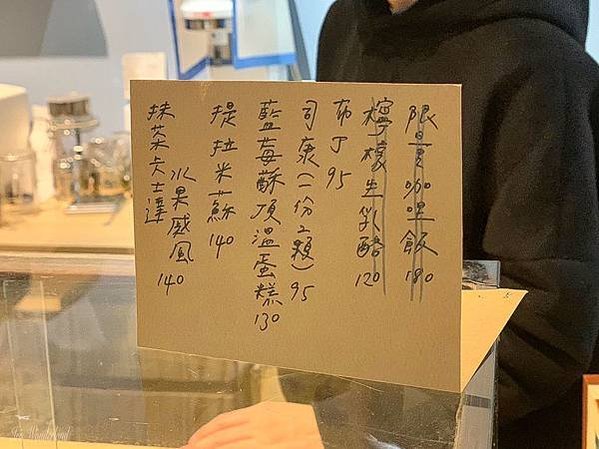 限量咖哩飯 180
檸檬生乳酪 120
布丁 95
司康(一份2顆) 95
藍莓酥頂溫蛋糕 130
提拉米蘇 140
抹茶卡士達
水果戚風 140